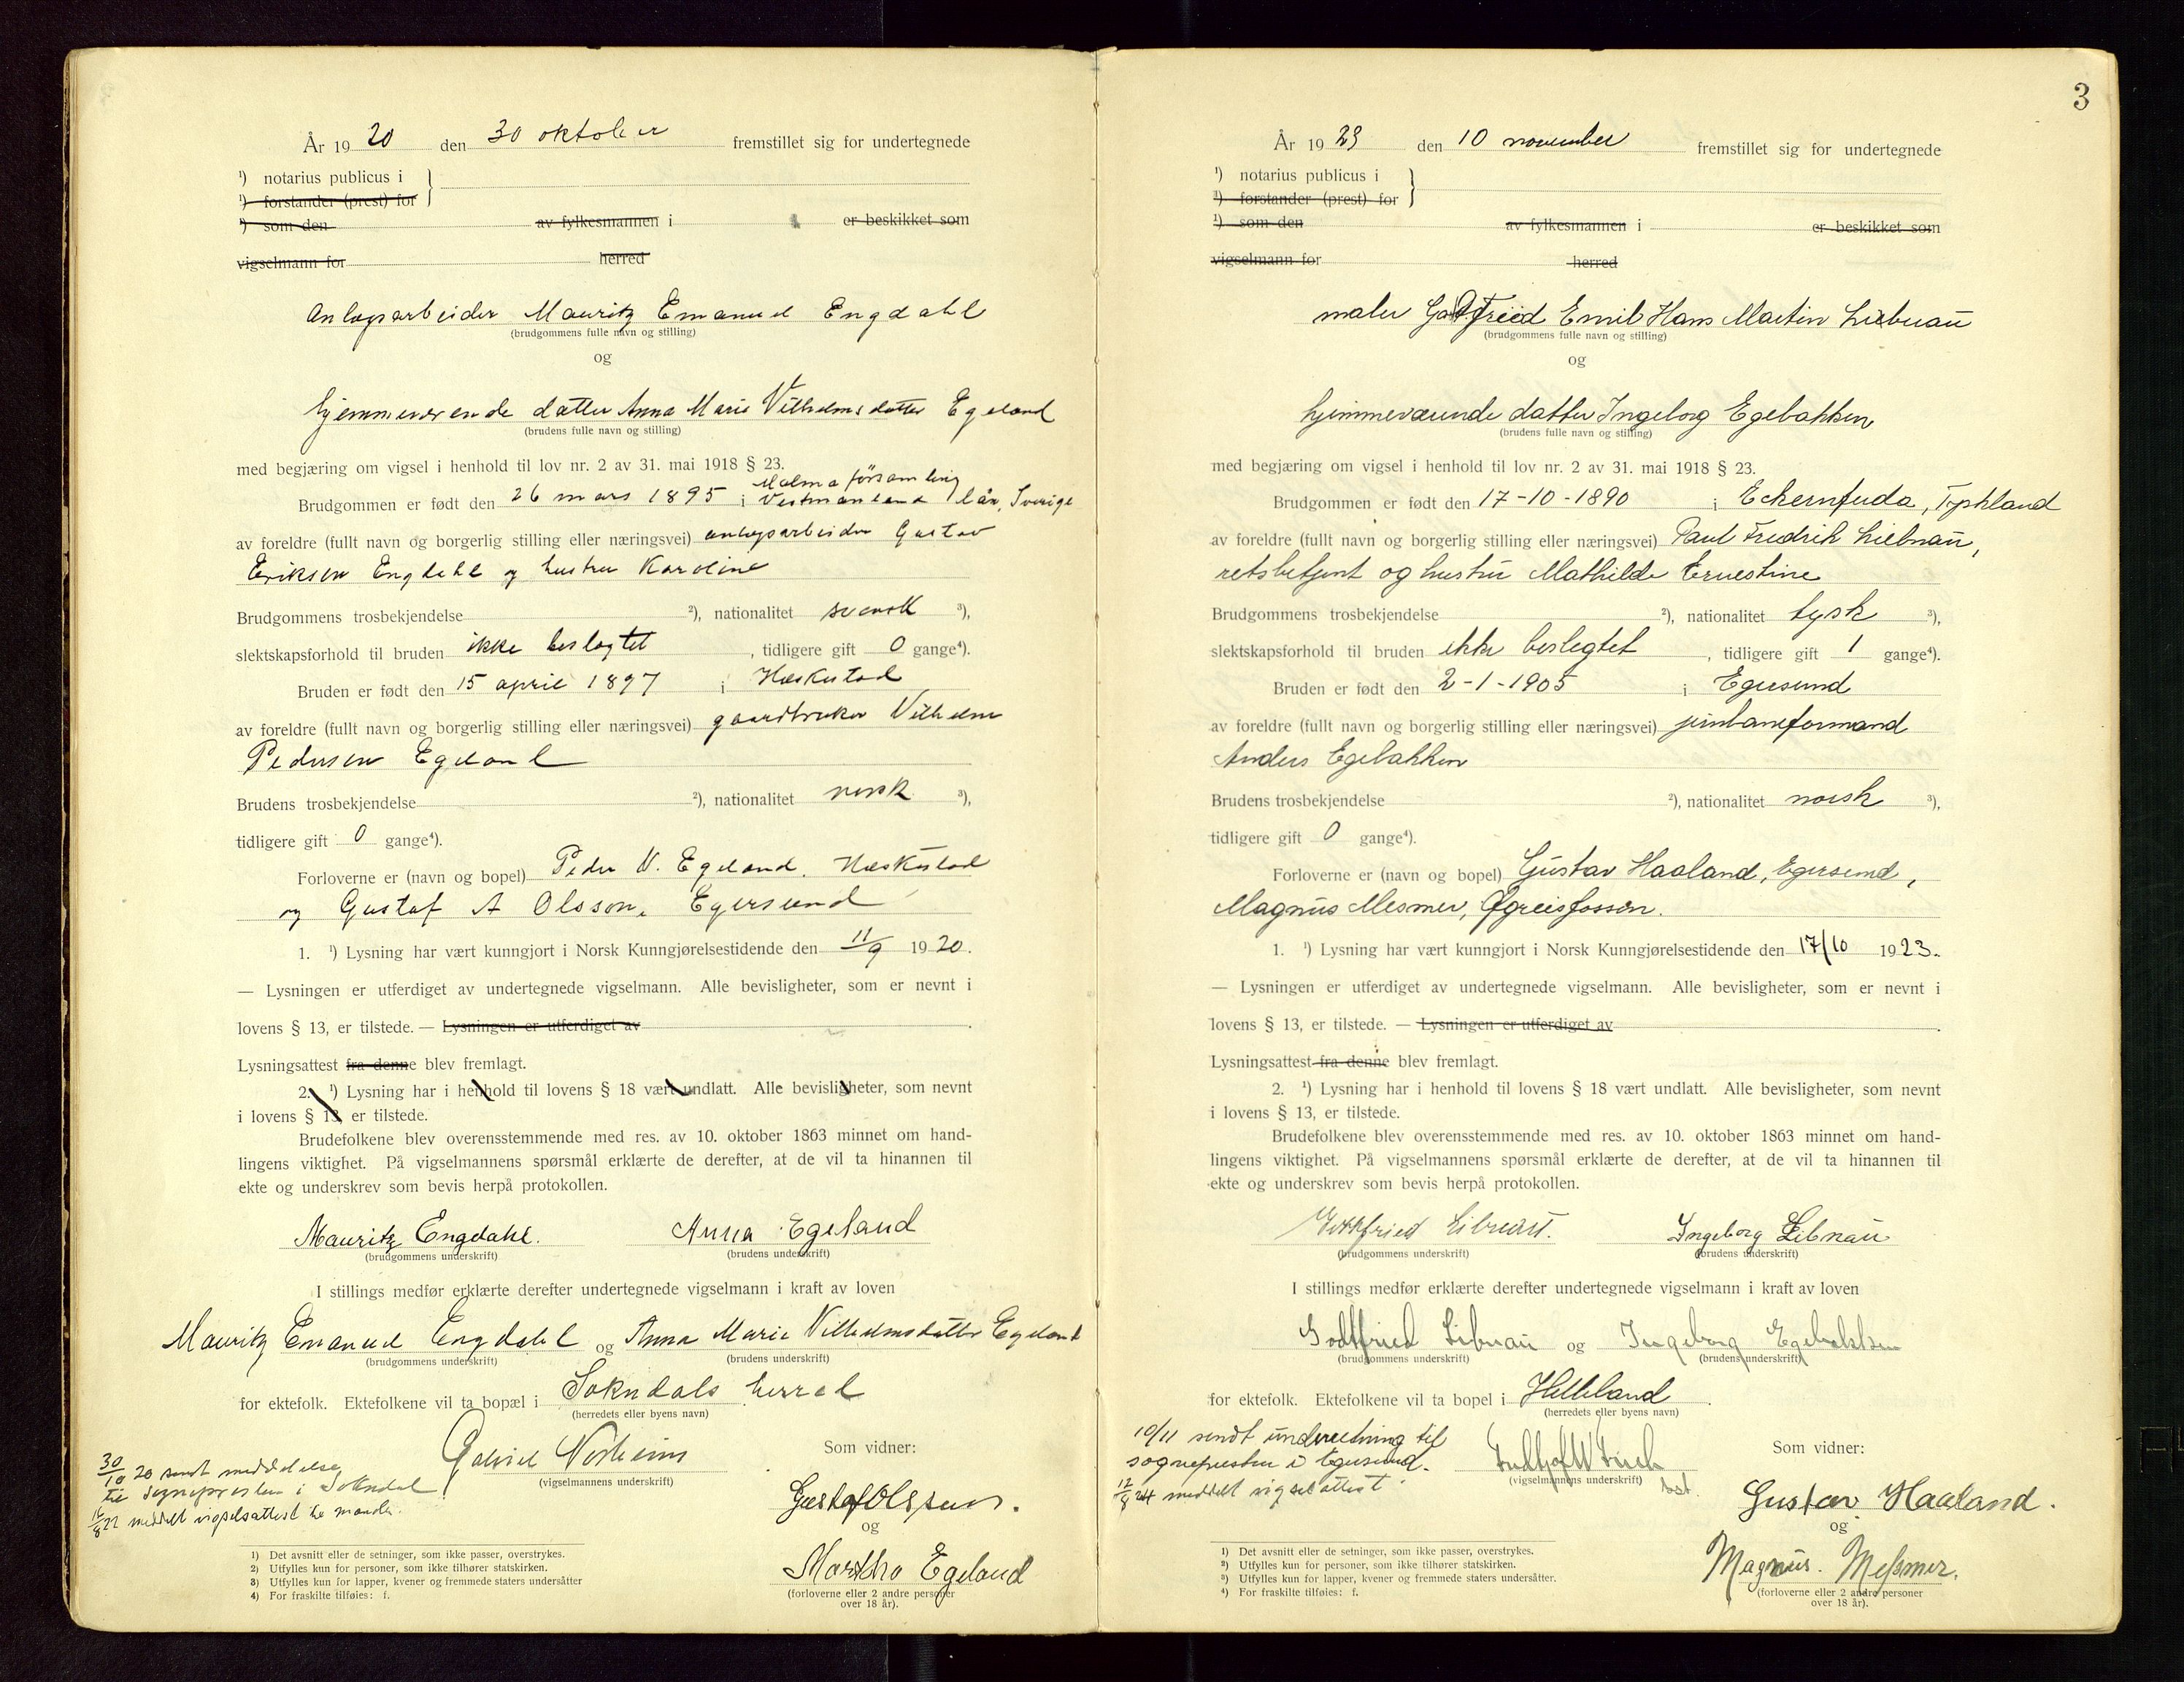 År 1920 den 30 oktober fremstillet sig for undertegnede
¹) notarius publicus i
¹) forstander (prest) for
¹) som den av fylkesmannen i er beskikket som
vigselmann for herred
Anlægsarbeider Mauritz Emanuel Engdahl
(brudgommens fulle navn og stilling)
og
hjemmeværende datter Anna Marie Vilhelmsdatter Egeland
(brudens fulle navn og stilling)
med begjæring om vigsel i henhold til lov nr. 2 av 31. mai 1918 § 23.
Malma församling
Brudgommen er født den 26 mars 1895 i Vestmanland län, Sverige
av foreldre (fullt navn og borgerlig stilling eller næringsvei) anlægsarbeider Gustav
Eriksen Engdahl og hustru Karoline
Brudgommens trosbekjendelse ²), nationalitet svensk ³),
slektskapsforhold til bruden ikke beslægtet, tidligere gift 0 gange⁴).
Bruden er født den 15 april 1897 i Heskestad
av foreldre (fullt navn og borgerlig stilling eller næringsvei) gaardbruker Vilhelm
Pedersen Egeland
Brudens trosbekjendelse ²), nationalitet norsk ³),
tidligere gift 0 gange⁴).
Forloverne er (navn og bopel) Peder V. Egeland, Heskestad
og Gustaf A Olsson, Egersund
1. ¹) Lysning har vært kunngjort i Norsk Kunngjørelsestidende den 11/9 1920.
— Lysningen er utferdiget av undertegnede vigselmann. Alle bevisligheter, som er nevnt i
lovens § 13, er tilstede. — Lysningen er utferdiget av
Lysningsattest fra denne blev fremlagt.
2. ¹) Lysning har i henhold til lovens § 18 vært undlatt. Alle bevisligheter, som nevnt
i lovens § 13 er tilstede.
Brudefolkene blev overensstemmende med res. av 10. oktober 1863 minnet om hand-
lingens viktighet. På vigselmannens spørsmål erklærte de derefter, at de vil ta hinannen til
ekte og underskrev som bevis herpå protokollen.
Mauritz Engdahl. Anna Egeland
(brudgommens underskrift) (brudens underskrift)
I stillings medfør erklærte derefter undertegnede vigselmann i kraft av loven
Mauritz Emanuel Engdahl og Anna Marie Vilhelmsdatter Egeland
(brudgommens underskrift) (brudens underskrift)
for ektefolk. Ektefolkene vil ta bopæl i Sokndals herred
(herredets eller byens navn)
Gabriel Nesheim
(vigselmannens underskrift)
30/10 20 sendt meddelelse
til sognepresten i Sokndal
16/8 22 meddelt vigselsattest til manden.
Som vidner:
Gustaf Olsson.
og
Martha Egeland
(forloverne eller 2 andre personer
over 18 år).
1) Det avsnitt eller de setninger, som ikke passer, overstrykes.
2) Utfylles kun for personer, som ikke tilhører statskirken.
3) Utfylles kun for lapper, kvener og fremmede staters undersåtter
4) For fraskilte tilføies: f.
3
År 1923 den 10 november fremstillet sig for undertegnede
¹) notarius publicus i
¹) forstander (prest) for
¹) som den av fylkesmannen i er beskikket som
vigselmann for herred
maler Gottfried Emil Hans Martin Liebnau
(brudgommens fulle navn og stilling)
og
hjemmeværende datter Ingeborg Egebakken
(brudens fulle navn og stilling)
med begjæring om vigsel i henhold til lov nr. 2 av 31. mai 1918 § 23.
Brudgommen er født den 17-10-1890 i Eckernfuda, Tyskland
av foreldre (fullt navn og borgerlig stilling eller næringsvei) Paul Fredrik Liebnau,
retsbetjent og hustru Mathilde Ernestine
Brudgommens trosbekjendelse ²), nationalitet tysk ³),
slektskapsforhold til bruden ikke beslegtet, tidligere gift 1 gange⁴).
Bruden er født den 2-1-1905 i Egersund
av foreldre (fullt navn og borgerlig stilling eller næringsvei) jernbaneformand
Anders Egebakken
Brudens trosbekjendelse ²), nationalitet norsk ³),
tidligere gift 0 gange⁴).
Forloverne er (navn og bopel) Gustav Haaland, Egersund,
Magnus Mesmer, Øgreisfossen.
1. ¹) Lysning har vært kunngjort i Norsk Kunngjørelsestidende den 17/10 1923.
— Lysningen er utferdiget av undertegnede vigselmann. Alle bevisligheter, som er nevnt i
lovens § 13, er tilstede. — Lysningen er utferdiget av
Lysningsattest fra denne blev fremlagt.
2. ¹) Lysning har i henhold til lovens § 18 vært undlatt. Alle bevisligheter, som nevnt
i lovens § 13, er tilstede.
Brudefolkene blev overensstemmende med res. av 10. oktober 1863 minnet om hand-
lingens viktighet. På vigselmannens spørsmål erklærte de derefter, at de vil ta hinannen til
ekte og underskrev som bevis herpå protokollen.
Gottfried Libnau. Ingeborg Libnau
(brudgommens underskrift) (brudens underskrift)
I stillings medfør erklærte derefter undertegnede vigselmann i kraft av loven
Godtfried Libnau og Ingeborg Egebakken
(brudgommens underskrift) (brudens underskrift)
for ektefolk. Ektefolkene vil ta bopel i Helleland.
(herredets eller byens navn)
10/11 sendt underretning til
sognepresten i Egersund.
12/8 24 meddelt vigselattest.
(vigselmannens underskrift)
Som vidner:
Gustav Haaland.
og
Magnus. Messmer.
(forloverne eller 2 andre personer
over 18 år).
¹) Det avsnitt eller de setninger, som ikke passer, overstrykes.
²) Utfylles kun for personer, som ikke tilhører statskirken.
³) Utfylles kun for lapper, kvener og fremmede staters undersåtter.
⁴) For fraskilte tilføies: f.